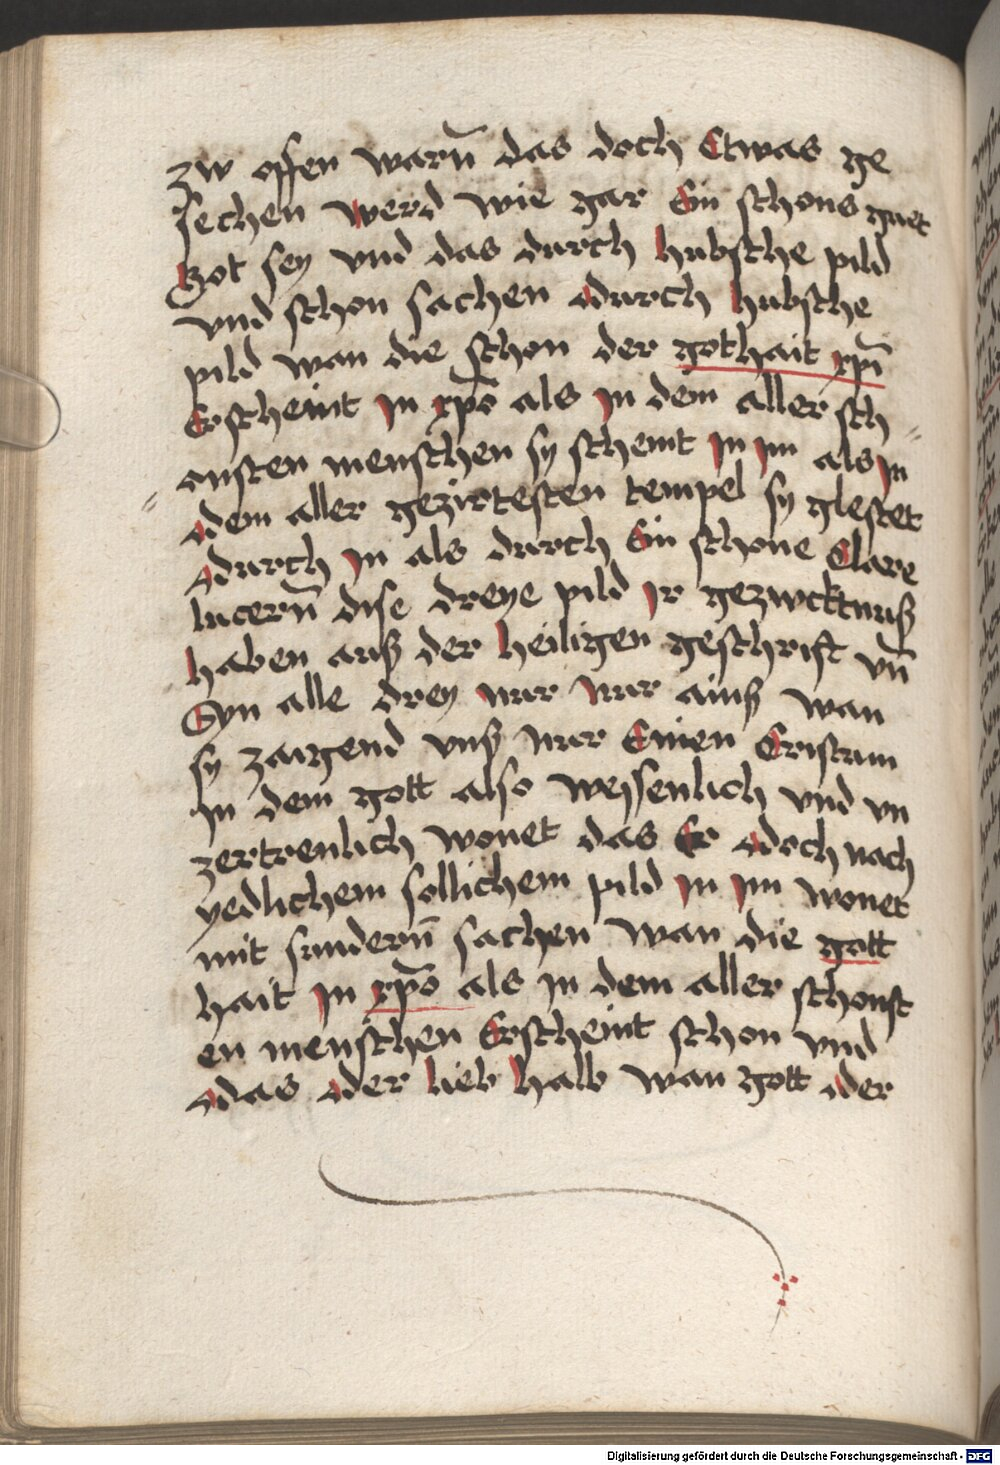 zw opffen warn̄ das doch Etwas ge
sechen werd wie gar Ein schons guet
Got sey vnd das durch hubsche pild
vnd schon sachen durch hubsche
pild wan die schon der gothait xp̄i
Erscheint In xp̄o als In dem aller sch
onsten menschen sy scheint In Im als In
dem aller gezirtesten tempel sy glestet
durch In als durch Ein schone Clare
lucern̄ dise dreye pild Ir gezwcktnuß
haben auß der heiligen geschrift vn̄
Syn alle drey nur nur ainß wan
sy zaigend vnß nur Einen Cristum
In dem gott also weysenlich vnd vn
zertrenlich wonet das Er doch nach
yedlichem sollichem pild In Im wonet
mit sundern̄ sachen wan die gott
hait In xp̄o als In dem aller schonst
en menschen Erscheint schon vnd
das der lieb halb wan gott der
Digitalisierung gefördert durch die Deutsche Forschungsgemeinschaft - DFG